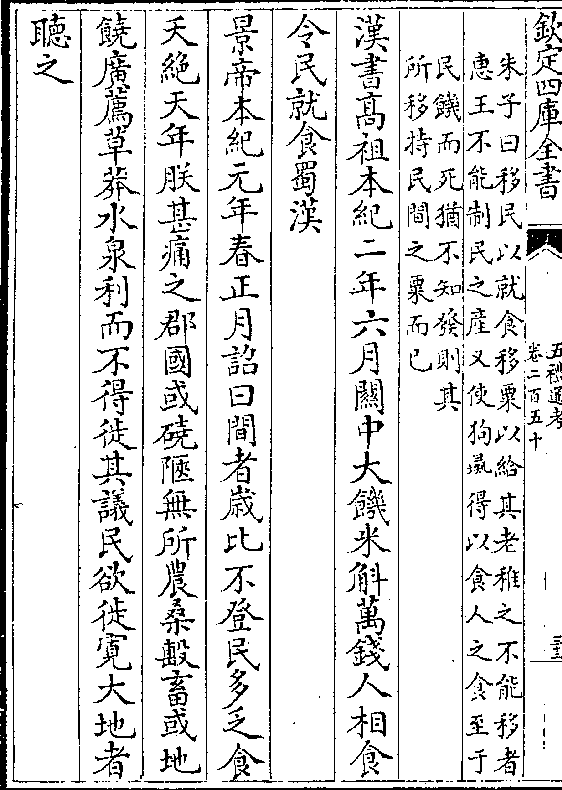 欽定四庫全書
五禮通考
卷二百五十
朱子曰移民以就食移粟以給其老稚之不能移者
惠王不能制民之產又使狗彘得以食人之食至于
民饑而死猶不知發則其
所移特民間之粟而已
漢書高祖本紀二年六月關中大饑米斛萬錢人相食
令民就食蜀漢
景帝本紀元年春正月詔曰間者歳比不登民多乏食
夭絶天年朕甚痛之郡國或磽陿無所農桑毄畜或地
饒廣薦草莽水泉利而不得徙其議民欲徙寛大地者
聽之